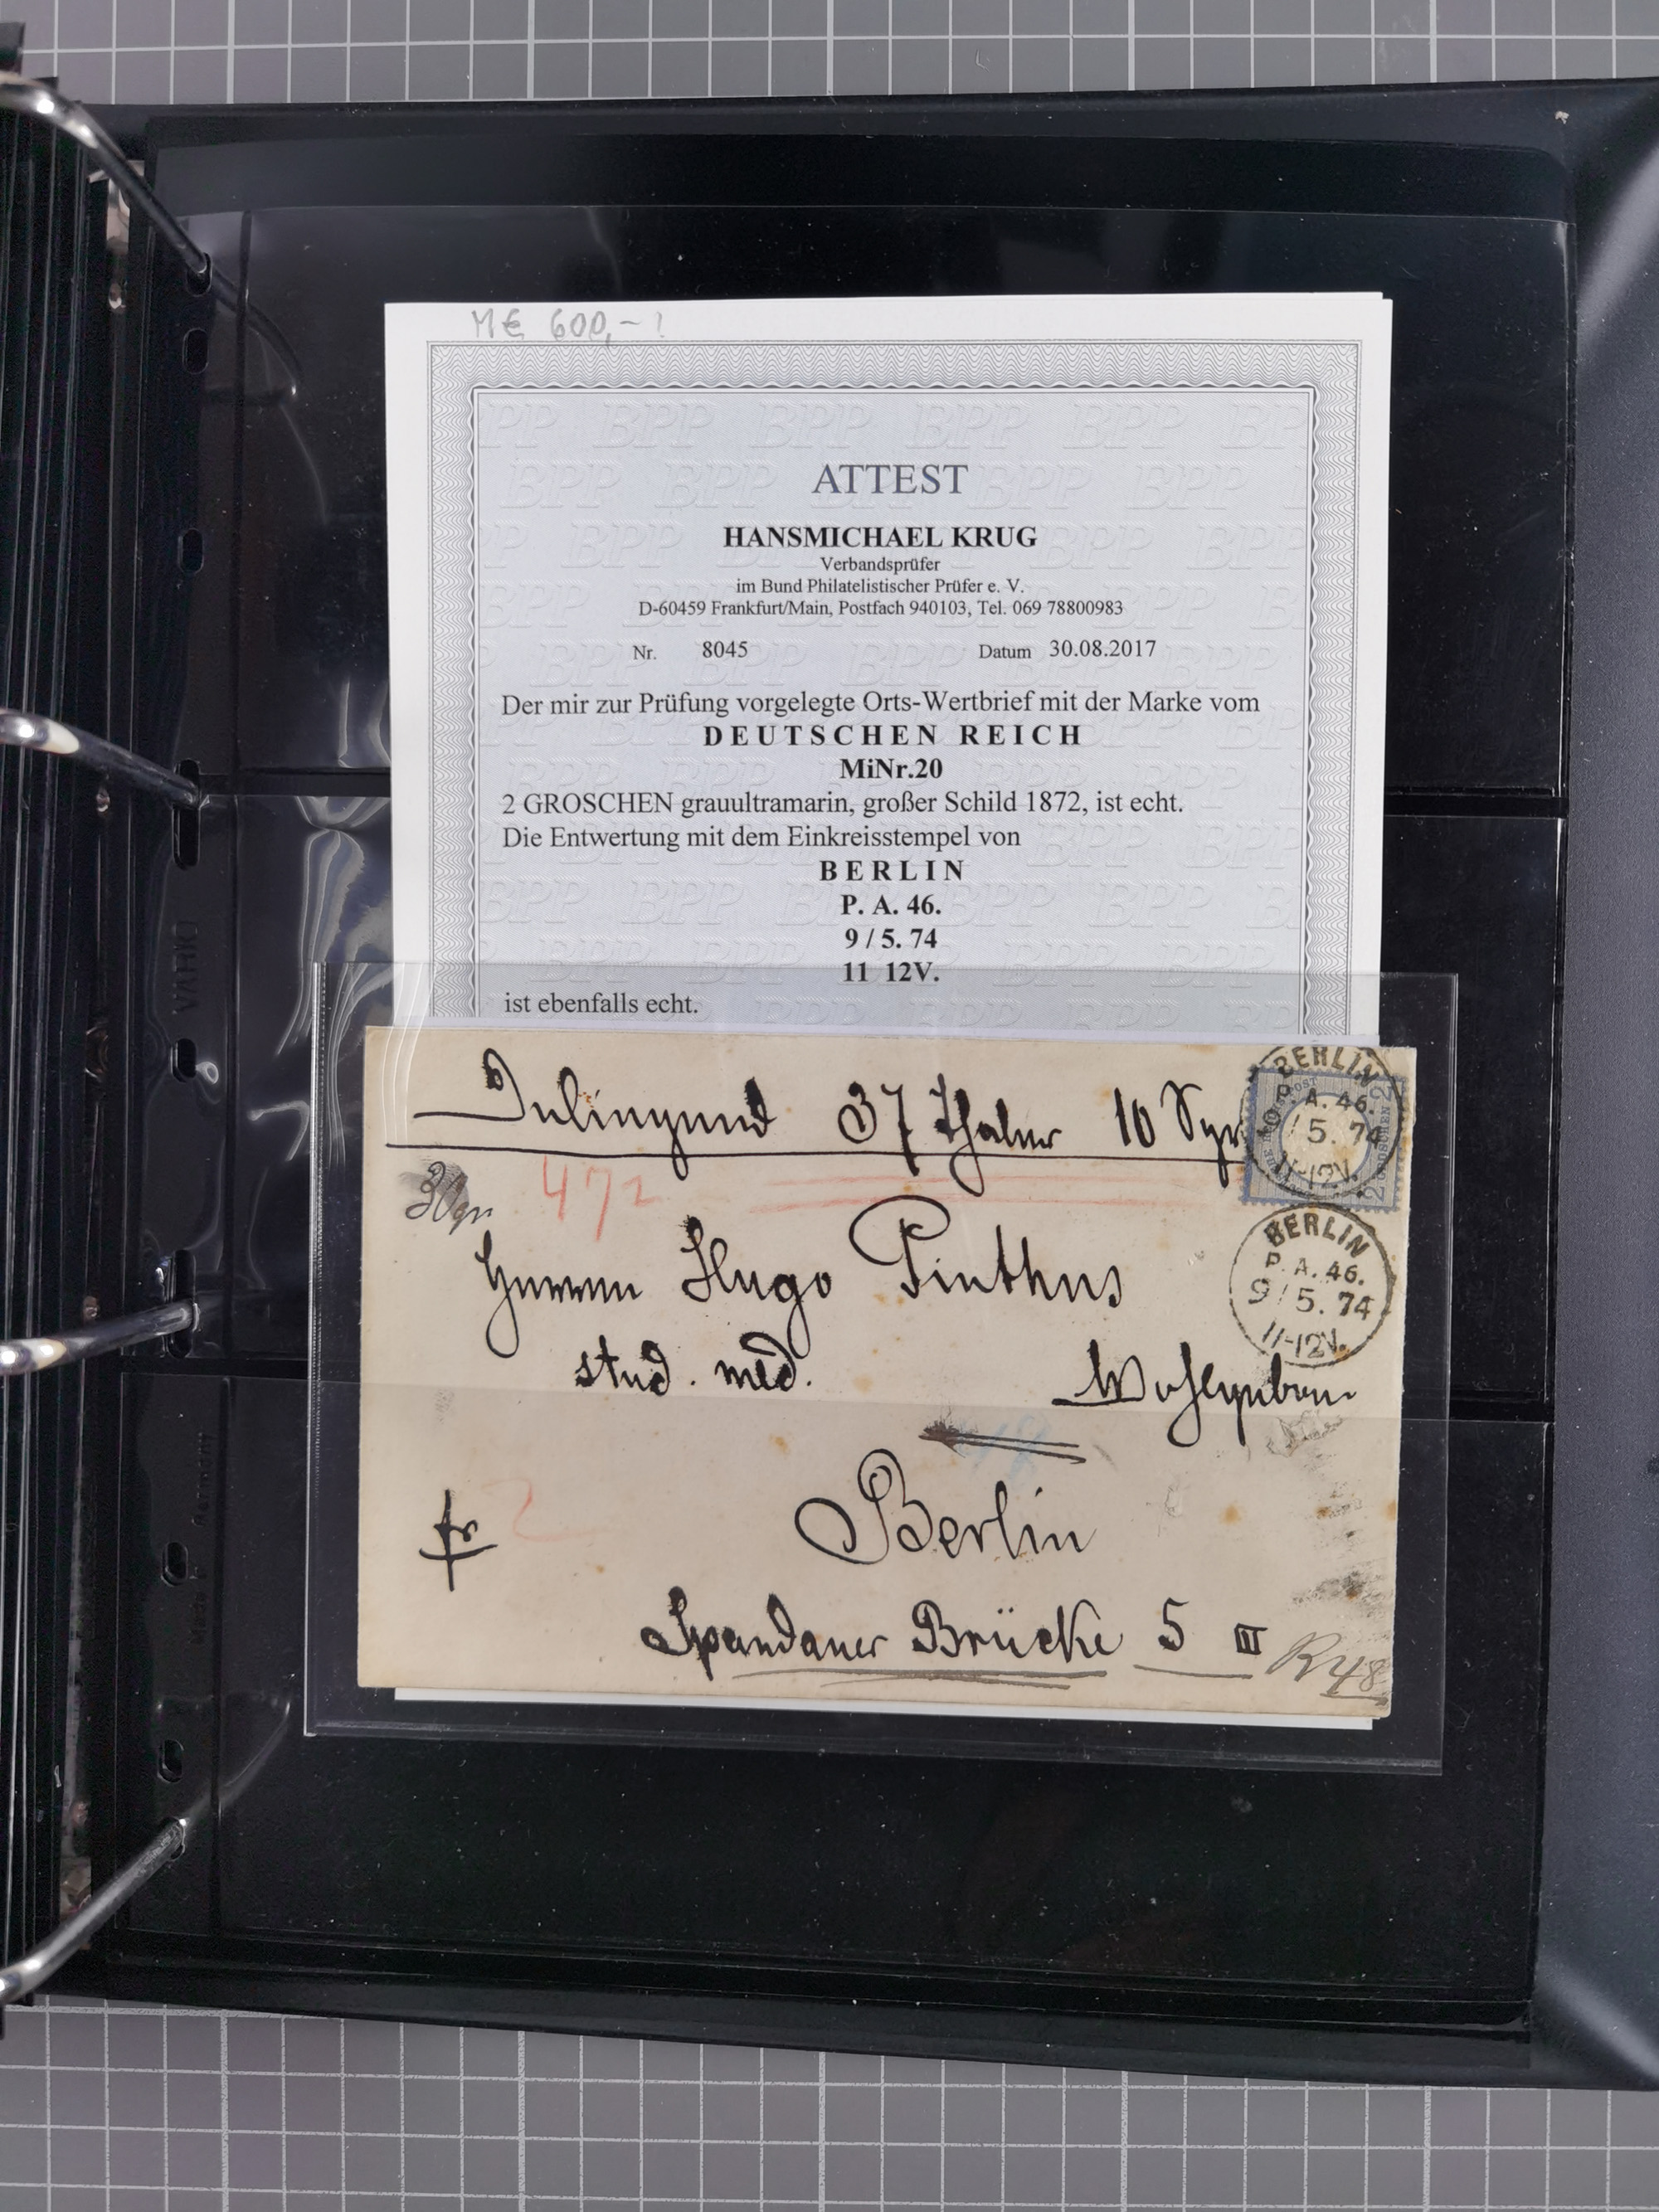 M€ 600,- !
ATTEST
HANSMICHAEL KRUG
Verbandsprüfer
im Bund Philatelistischer Prüfer e. V.
D-60459 Frankfurt/Main, Postfach 940103, Tel. 069 78800983
Nr. 8045 Datum 30.08.2017
Der mir zur Prüfung vorgelegte Orts-Wertbrief mit der Marke vom
DEUTSCHEN REICH
MiNr.20
2 GROSCHEN grauultramarin, großer Schild 1872, ist echt.
Die Entwertung mit dem Einkreisstempel von
BERLIN
P. A. 46.
9 / 5. 74
11 12V.
ist ebenfalls echt.
Inliegend 37 Thaler 10 Sgr
BERLIN
P. A. 46.
9 / 5. 74
11-12V.
472
Herrn Hugo Pinthus
BERLIN
P. A. 46.
9 / 5. 74
11-12V.
stud. med. Wohlgeboren
fr 2
Berlin
Spandauer Brücke 5 III
R48
VARIO